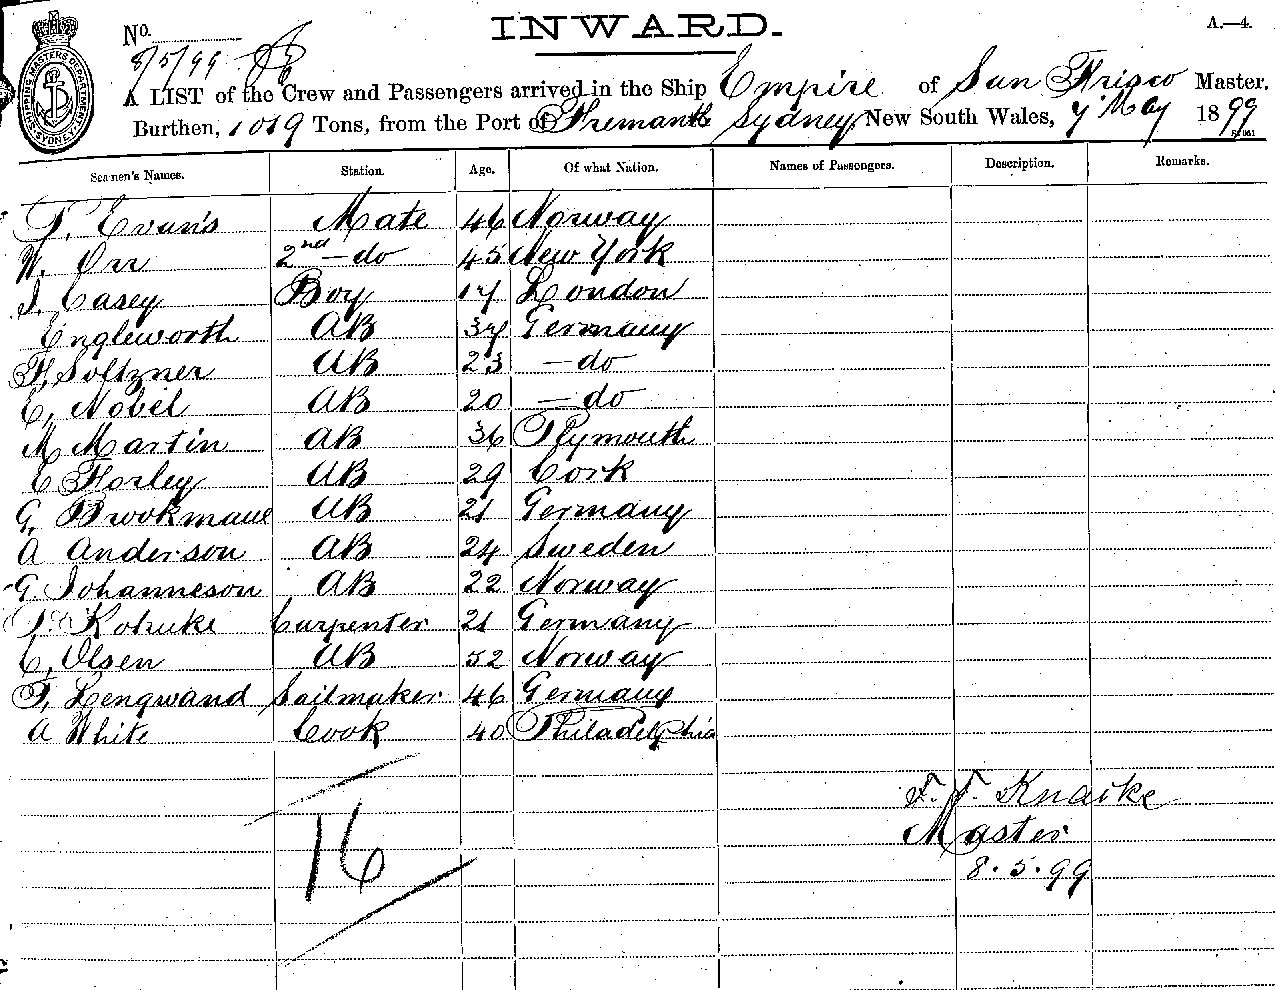 INWARD.
A.—4.
No.
8/5/99
SHIPPING MASTERS DEPARTMENT SYDNEY
A LIST of the Crew and Passengers arrived in the Ship Empire of San Frisco Master.
Burthen, 1019 Tons, from the Port of Fremantle Sydney, New South Wales, 7 May 1899
Seamen's Names. Station. Age. Of what Nation. Names of Passengers. Description. Remarks.
T. Evan's Mate 46 Norway
W. Orr 2nd — do 45 New York
J. Casey Boy 17 London
Engleworth AB 37 Germany
F. Soltzner AB 23 — do
E. Nobel AB 20 — do
M Martin AB 36 Plymouth
C Horley AB 29 Cork
G. Brookmane AB 21 Germany
A Anderson AB 24 Sweden
G. Johanneson AB 22 Norway
Kohuke Carpenter 21 Germany
C. Olsen AB 52 Norway
F. Lengwand Sailmaker 46 Germany
A White Cook 40 Philadelphia
16
F. T. Knacke
Master
8.5.99